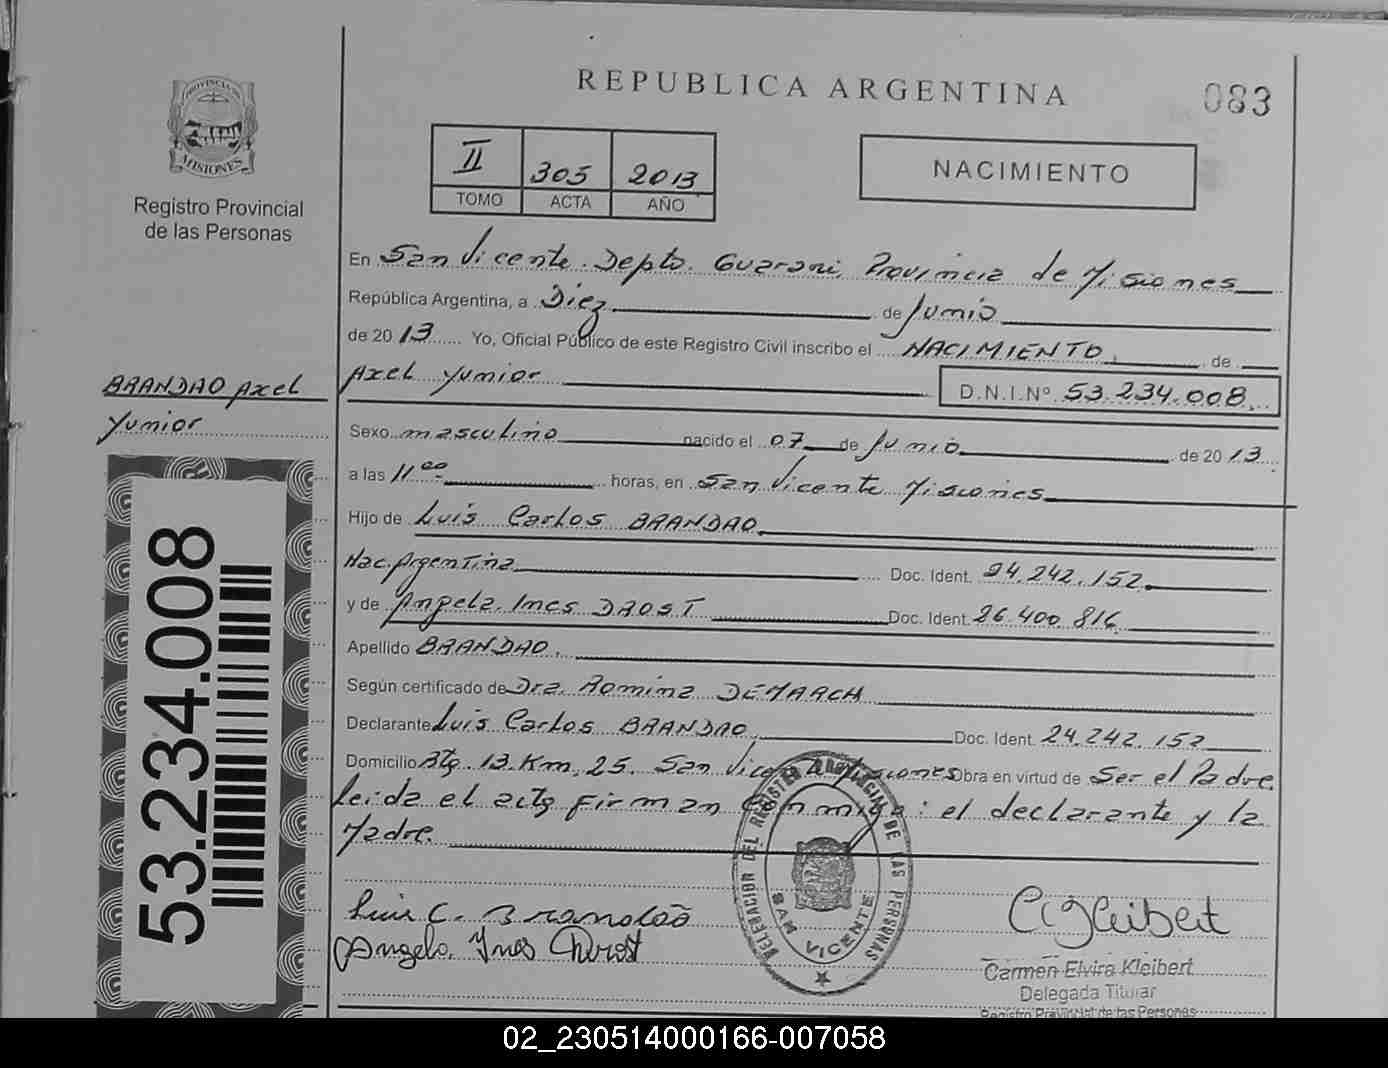 REPUBLICA ARGENTINA
083
PROVINCIA DE
MISIONES
Registro Provincial
de las Personas
II 305 2013
TOMO ACTA AÑO
NACIMIENTO
En San Vicente. Depto. Guarani. Provincia de Misiones
República Argentina, a Diez de Junio
de 2013 Yo, Oficial Público de este Registro Civil inscribo el NACIMIENTO. de
Axel Yunior D.N.I.Nº 53.234.008.
BRANDAO Axel
Yunior
Sexo masculino nacido el 07 de Junio de 2013
a las 11 00 horas, en San Vicente Misiones
Hijo de Luis Carlos BRANDAO
Nac. Argentina Doc. Ident. 24.242.152
y de Angela. Ines DROST Doc. Ident. 26.400.816
Apellido BRANDAO.
Según certificado de Dra. Romina DEMARCH
Declarante Luis Carlos BRANDAO Doc. Ident. 24.242.152
Domicilio Rta. 13. Km. 25. San Vicente Misiones Obra en virtud de Ser el Padre
Leida el acta firman conmigo: el declarante y la
Madre.
53.234.008
DELEGACION DEL REGISTRO PROVINCIAL DE LAS PERSONAS
SAN VICENTE
Luis C. Brandão
Angela. Ines Drost
C Kleibert
Carmen Elvira Kleibert
Delegada Titular
Registro Provincial de las Personas
02_230514000166-007058